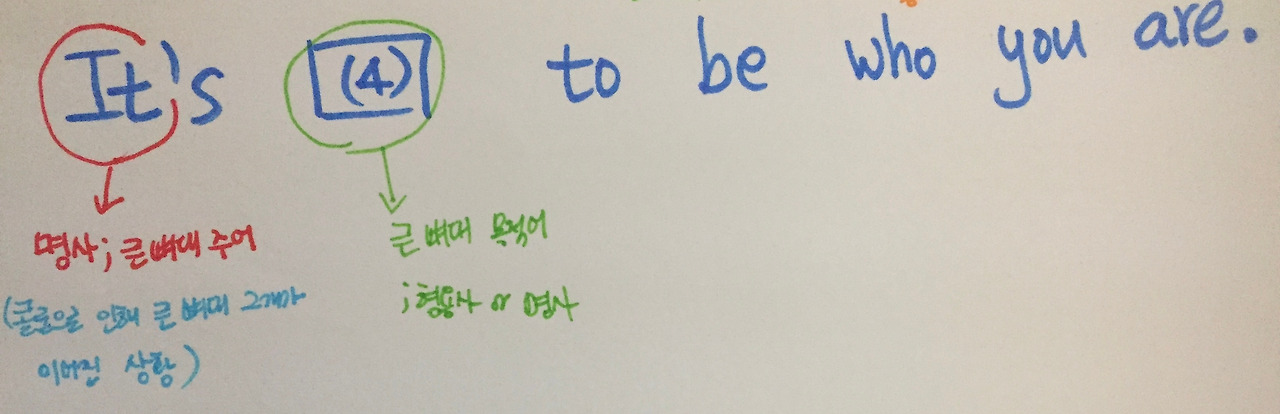 It's (4) to be who you are.
명사; 큰 뼈대 주어
큰 뼈대 목적어
(콜론으로 인해 큰 뼈대 2개가
; 형용사 or 명사
이어진 상황)